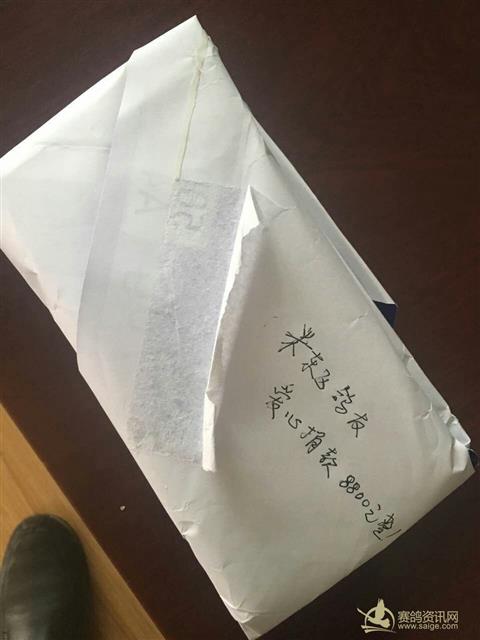 米东飞鸽友
爱心捐款8800元整!
赛鸽资讯网
www.saige.com